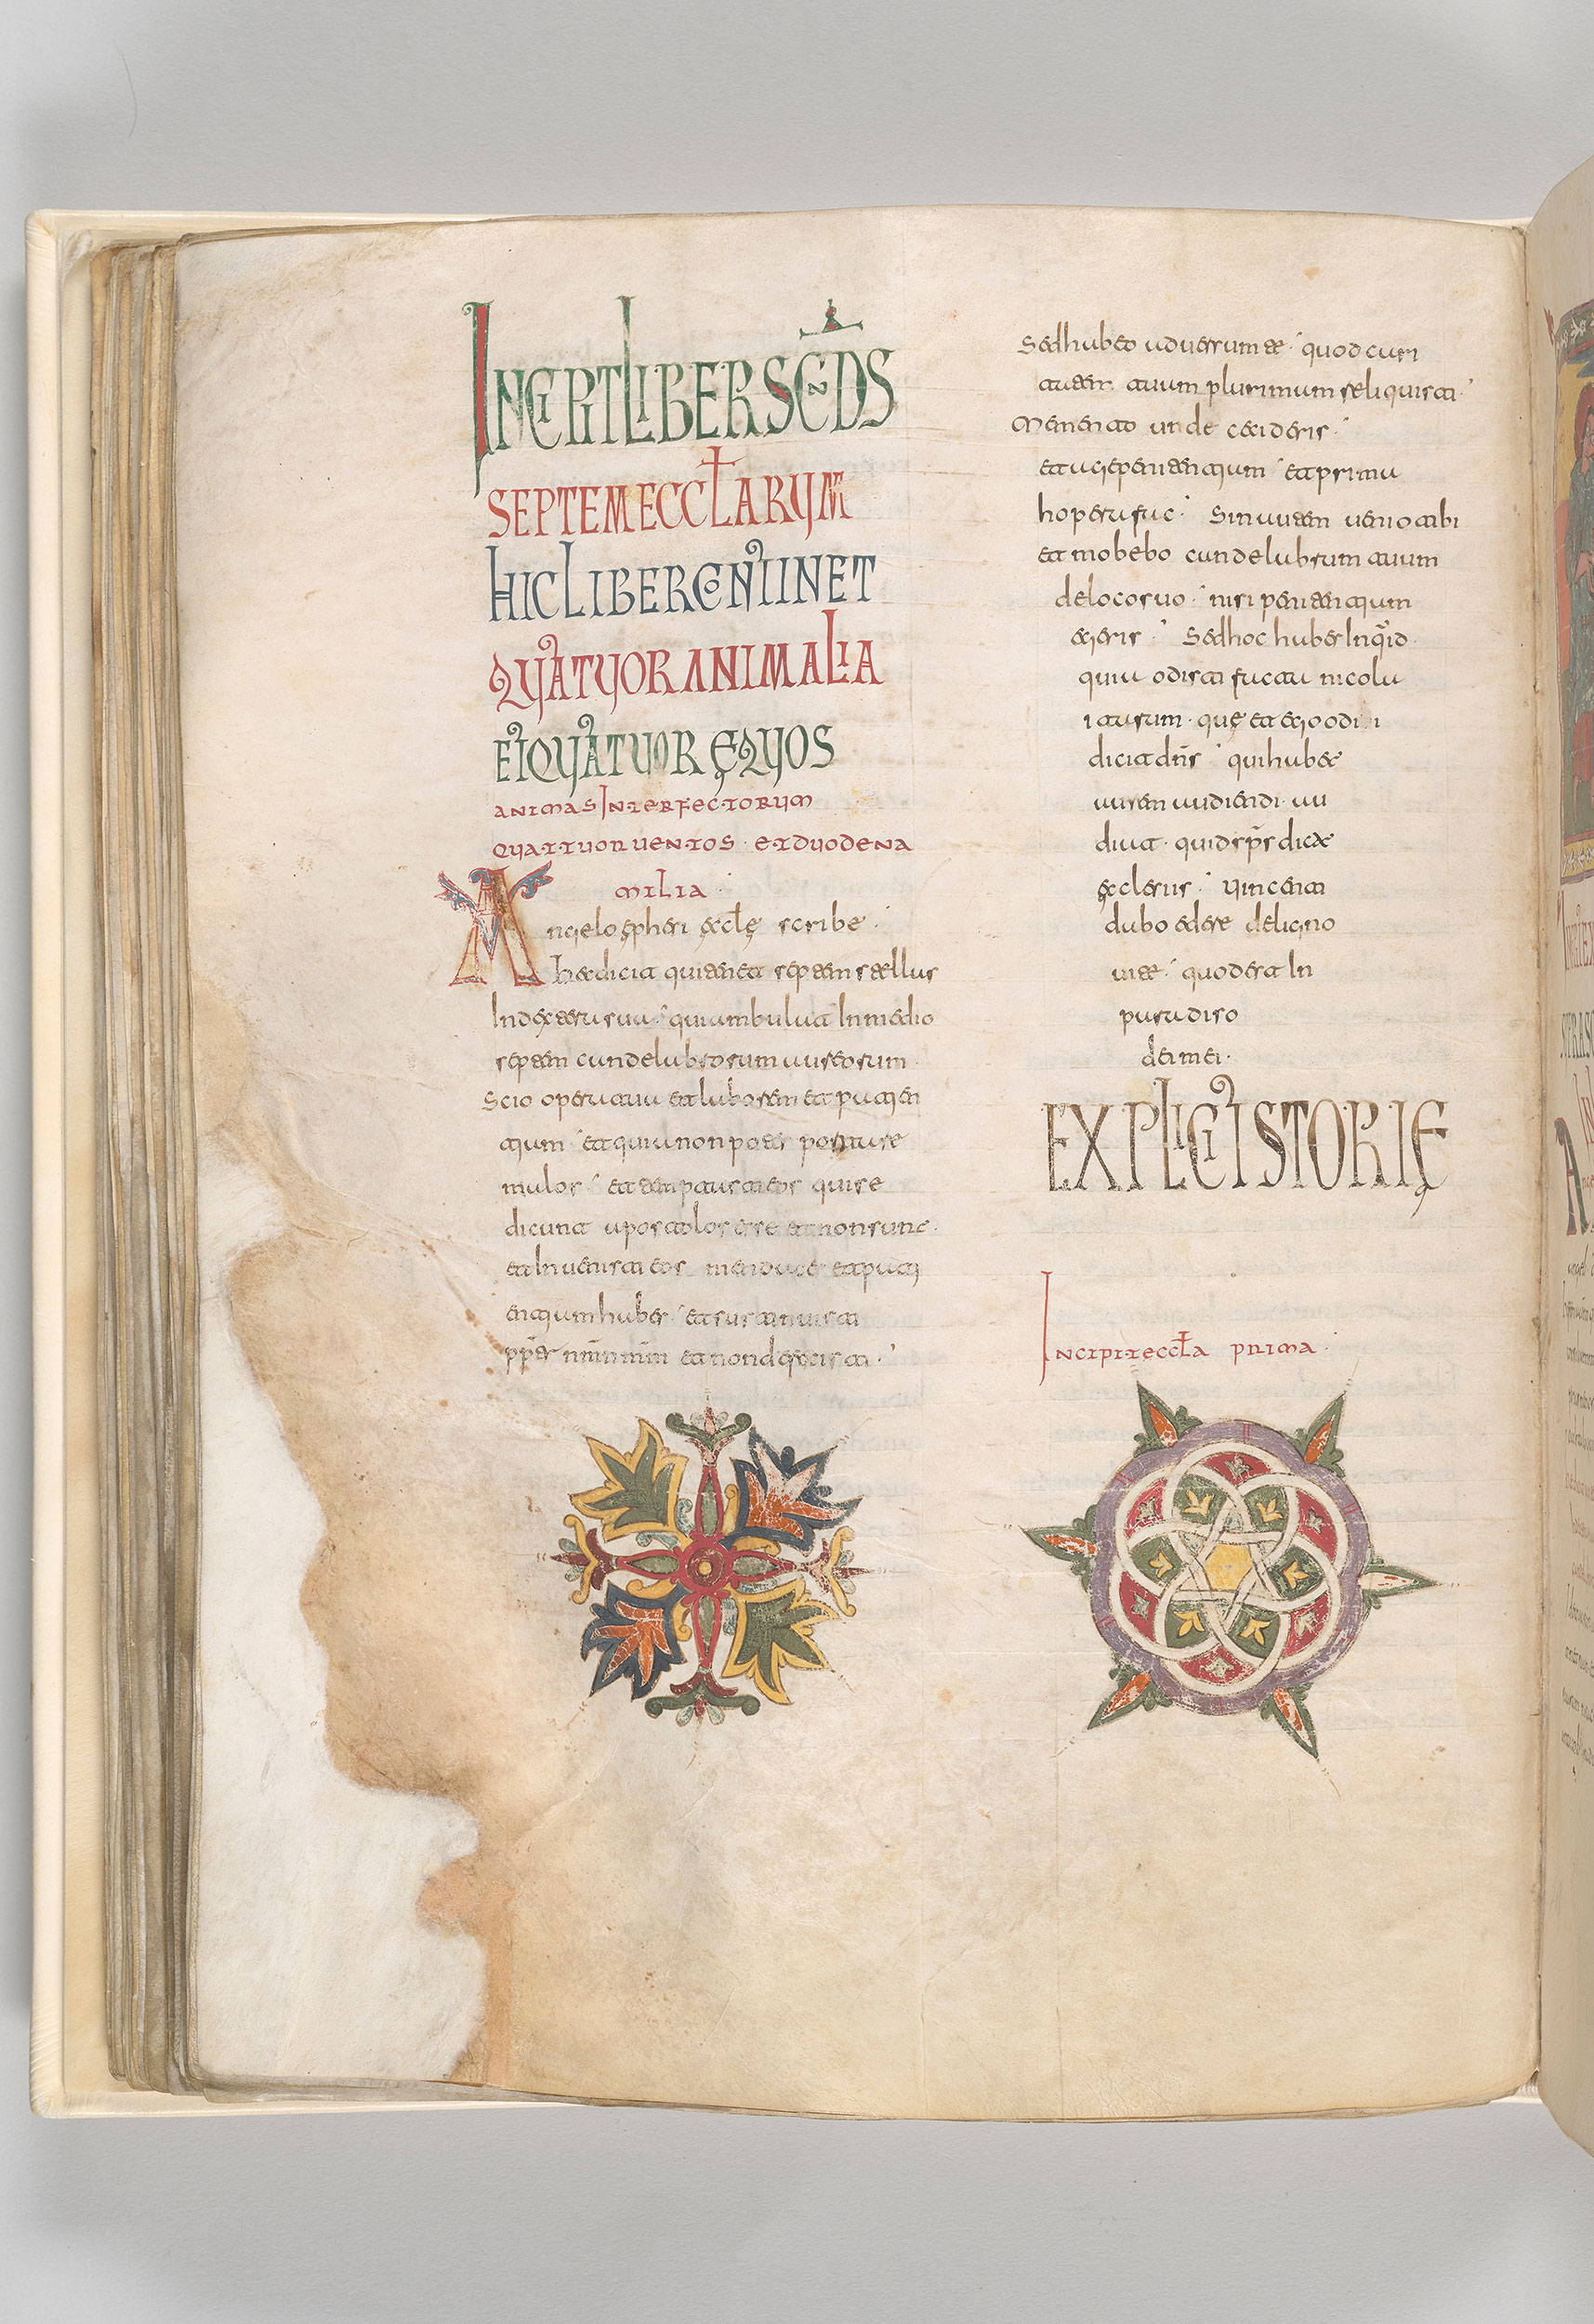 INCIPIT LIBER SECNDS
SEPTEM ECCLARUM
HIC LIBER CONTINET
QUATUOR ANIMALIA
ET QUATUOR ĘQUOS
ANIMAS INTERFECTORUM
QUATTUOR UENTOS · ET DUODENA
MILIA ·
Angelo ęphesi ęcclę scribe ·
hec dicit qui tenet septem stellas
In dęxtera sua · qui ambulat In medio
septem candelabrorum aureorum ·
Scio opera tua et laborem et pacien
tium · et quia non potes portare
malos · et temptasti eos qui se
dicunt apostolos esse et non sunt ·
et Inuenisti eos mendaces et paci
entium habes · et sustinuisti
ppter nmn mm et non defecisti ·
Sed habeo aduersum te · quod cari
tatem tuam plurimum reliquisti ·
Memento unde cecideris ·
et age penitentium · et prima
h opera fac · Sin autem uenio tibi
et mobebo candelabrum tuum
de loco suo · nisi penitentium
egeris · Sed hoc habes Inquid
quia odisti facta nicola
itarum · quę et ego odi
dicit dns · qui habet
aurem audiendi · au
diat · quid sps dicat
ęclesiis · Uincenti
dabo edere de ligno
uite · quod est In
paradiso
dei mei ·
EXPLICIT ISTORIĘ
Incipit eccla prima ·